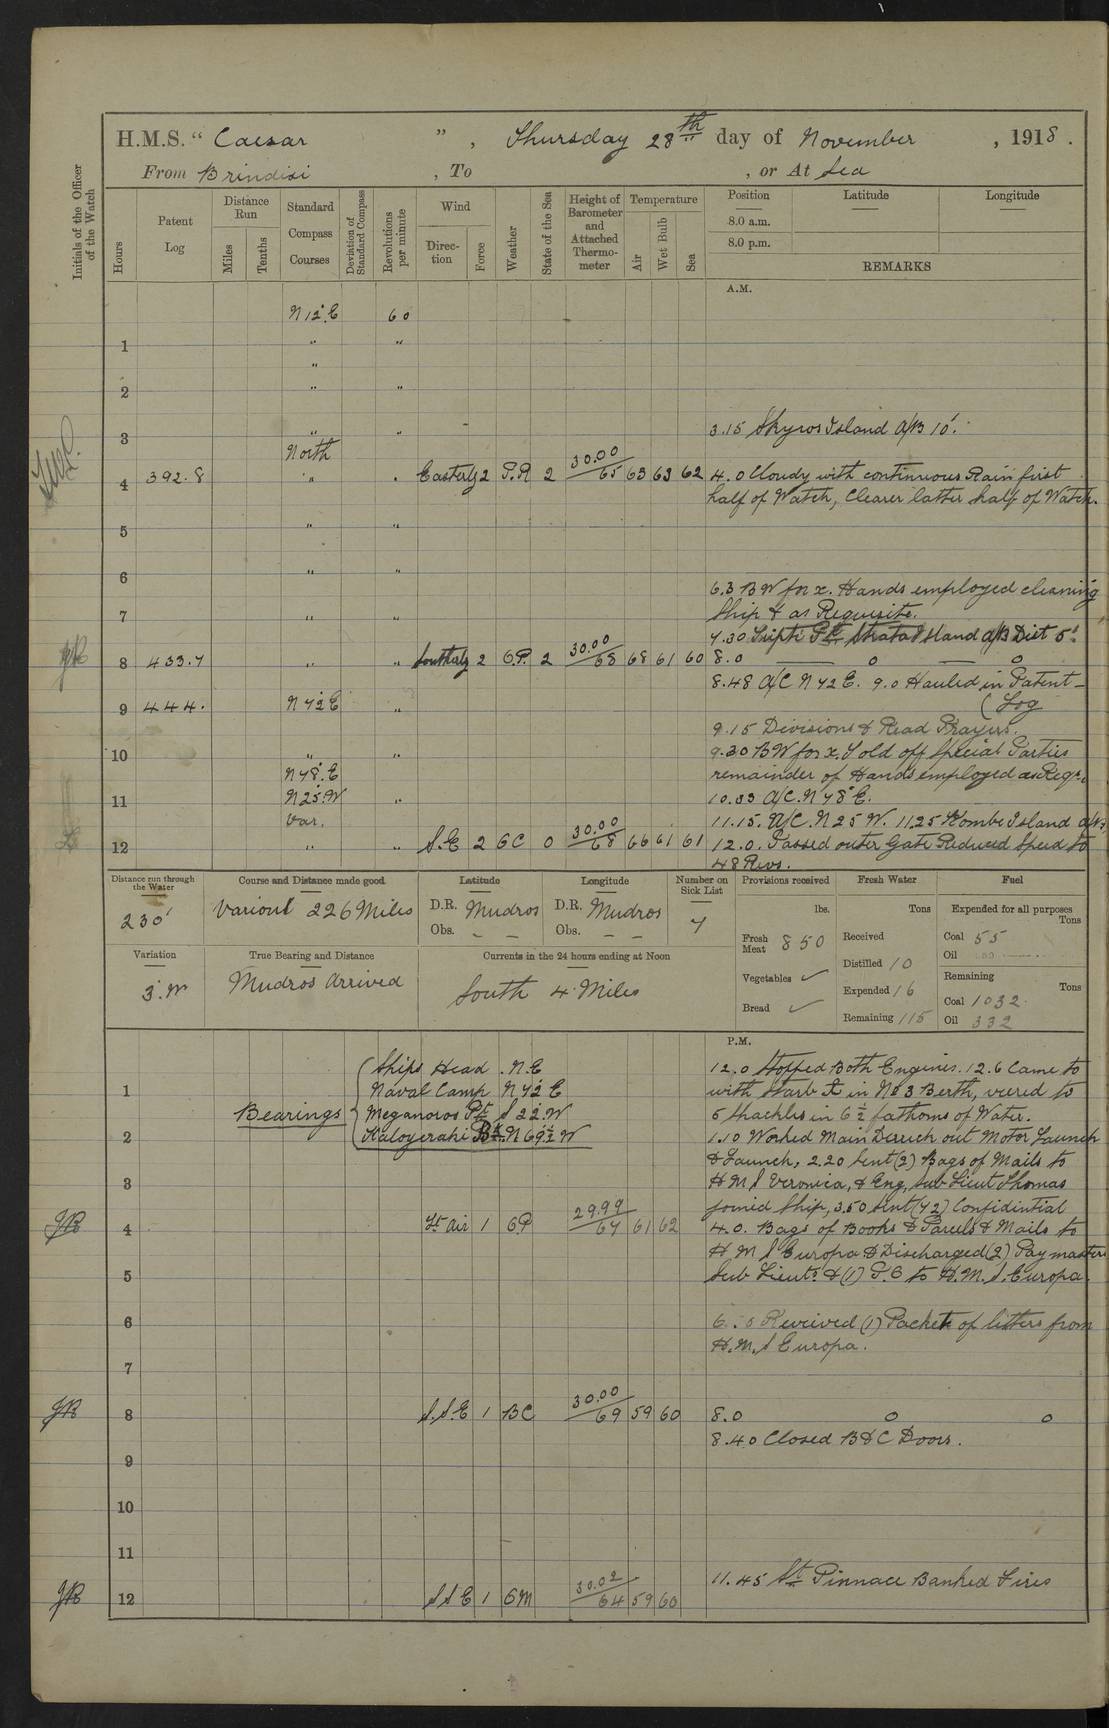 H.M.S. "Caesar", Thursday 28th day of November, 1918.
From Brindisi, To , or At Sea
Initials of the Officer of the Watch
Hours
Patent Log
Distance Run
Miles
Tenths
Standard Compass Courses
Deviation of Standard Compass
Revolutions per minute
Wind
Direction
Force
Weather
State of the Sea
Height of Barometer and Attached Thermometer
Temperature
Air
Wet Bulb
Sea
Position
Latitude
Longitude
8.0 a.m.
8.0 p.m.
REMARKS
A.M.
N 12° E 60
1 " "
"
2 " "
3 " "
3.15 Skyros Island A/B 10'.
North
4 392.8 " " Easterly 2 P.R 2 30.00/65 63 63 62 4.0 Cloudy with continuous Rain first
half of Watch, Clearer latter half of Watch.
5 " "
6 " "
6.3 BW for x. Hands employed cleaning
7 " " Ship & as Requisite.
7.30 Strata Island A/B Dist 5'
8 433.7 " " Southerly 2 30.00/68 68 61 60 8.0 — o — o
8.48 A/C N 42 E. 9.0 Hauled in Patent
9 444. N 42 E " (Log
9.15 Divisions & Read Prayers.
10 " " 9.30 BW for x. Told off Special Parties
N 48° E remainder of Hands employed as Reqs.
11 N 25° W " 10.33 A/C. N 48° E.
Var. 11.15. A/C. N 25 W. 11.25 Kombi Island A/B
12 " " S.E 2 6C 0 30.00/68 66 61 61 12.0. Passed outer Gate Reduced Speed to
48 Revs.
Distance run through the Water
230'
Course and Distance made good
Various 226 Miles
Latitude
D.R. Mudros
Obs. – –
Longitude
D.R. Mudros
Obs. – –
Number on Sick List
7
Provisions received
lbs.
Fresh Meat 850
Vegetables ✓
Bread ✓
Fresh Water
Tons
Received
Distilled 10
Expended 16
Remaining 115
Fuel
Expended for all purposes
Tons
Coal 55
Oil
Remaining
Tons
Coal 1032
Oil 332
Variation
3° W
True Bearing and Distance
Mudros Arrived
Currents in the 24 hours ending at Noon
South 4 Miles
P.M.
Bearings
Ships Head . N.E
Naval Camp N 42 E
Meganoros Pt S 22 W
Kaloyeraki Bn. N 69½ W
12.0 Stopped Both Engines. 12.6 Came to
1 with Starb ⚓ in No 3 Berth, veered to
5 Shackles in 6½ fathoms of Water.
2 1.10 Worked Main Derrick out Motor Launch
& Launch, 2.20 Sent (2) Bags of Mails to
3 H M S Veronica, & Eng, Sub Lieut Thomas
joined Ship, 3.50 Sent (42) Confidintial
4 Lt air 1 29.99/67 61 62 4.0. Bags of Books & Parcels & Mails to
H M S Europa & Discharged (2) Paymaster
5 Sub Lieuts & (1) to H.M.S. Europa.
6 Received (1) Packet of letters from
H.M.S Europa.
7
8 S.S.E 1 BC 30.00/69 59 60 8.0 o o
8.40 Closed B & C Doors.
9
10
11
11.45 St Pinnace Banked Fires
12 S S E 1 30.02/64 59 60